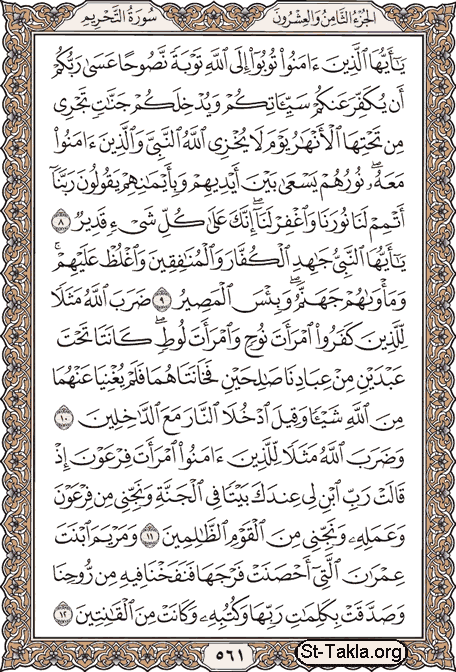 سُورَةُ التَّحْرِيمِ
الجُزْءُ الثَّامِنُ وَالعِشْرُونَ
يَٰٓأَيُّهَا ٱلَّذِينَ ءَامَنُوا۟ تُوبُوٓا۟ إِلَى ٱللَّهِ تَوْبَةً نَّصُوحًا عَسَىٰ رَبُّكُمْ
أَن يُكَفِّرَ عَنكُمْ سَيِّـَٔاتِكُمْ وَيُدْخِلَكُمْ جَنَّٰتٍ تَجْرِى
مِن تَحْتِهَا ٱلْأَنْهَٰرُ يَوْمَ لَا يُخْزِى ٱللَّهُ ٱلنَّبِىَّ وَٱلَّذِينَ ءَامَنُوا۟
مَعَهُۥ ۖ نُورُهُمْ يَسْعَىٰ بَيْنَ أَيْدِيهِمْ وَبِأَيْمَٰنِهِمْ يَقُولُونَ رَبَّنَآ
أَتْمِمْ لَنَا نُورَنَا وَٱغْفِرْ لَنَآ ۖ إِنَّكَ عَلَىٰ كُلِّ شَىْءٍ قَدِيرٌ ٨
يَٰٓأَيُّهَا ٱلنَّبِىُّ جَٰهِدِ ٱلْكُفَّارَ وَٱلْمُنَٰفِقِينَ وَٱغْلُظْ عَلَيْهِمْ ۚ
وَمَأْوَىٰهُمْ جَهَنَّمُ ۖ وَبِئْسَ ٱلْمَصِيرُ ٩ ضَرَبَ ٱللَّهُ مَثَلًا
لِّلَّذِينَ كَفَرُوا۟ ٱمْرَأَتَ نُوحٍ وَٱمْرَأَتَ لُوطٍ ۖ كَانَتَا تَحْتَ
عَبْدَيْنِ مِنْ عِبَادِنَا صَٰلِحَيْنِ فَخَانَتَاهُمَا فَلَمْ يُغْنِيَا عَنْهُمَا
مِنَ ٱللَّهِ شَيْـًٔا وَقِيلَ ٱدْخُلَا ٱلنَّارَ مَعَ ٱلدَّٰخِلِينَ ١٠
وَضَرَبَ ٱللَّهُ مَثَلًا لِّلَّذِينَ ءَامَنُوا۟ ٱمْرَأَتَ فِرْعَوْنَ إِذْ
قَالَتْ رَبِّ ٱبْنِ لِى عِندَكَ بَيْتًا فِى ٱلْجَنَّةِ وَنَجِّنِى مِن فِرْعَوْنَ
وَعَمَلِهِۦ وَنَجِّنِى مِنَ ٱلْقَوْمِ ٱلظَّٰلِمِينَ ١١ وَمَرْيَمَ ٱبْنَتَ
عِمْرَٰنَ ٱلَّتِىٓ أَحْصَنَتْ فَرْجَهَا فَنَفَخْنَا فِيهِ مِن رُّوحِنَا
وَصَدَّقَتْ بِكَلِمَٰتِ رَبِّهَا وَكُتُبِهِۦ وَكَانَتْ مِنَ ٱلْقَٰنِتِينَ ١٢
٥٦١
St-Takla.org